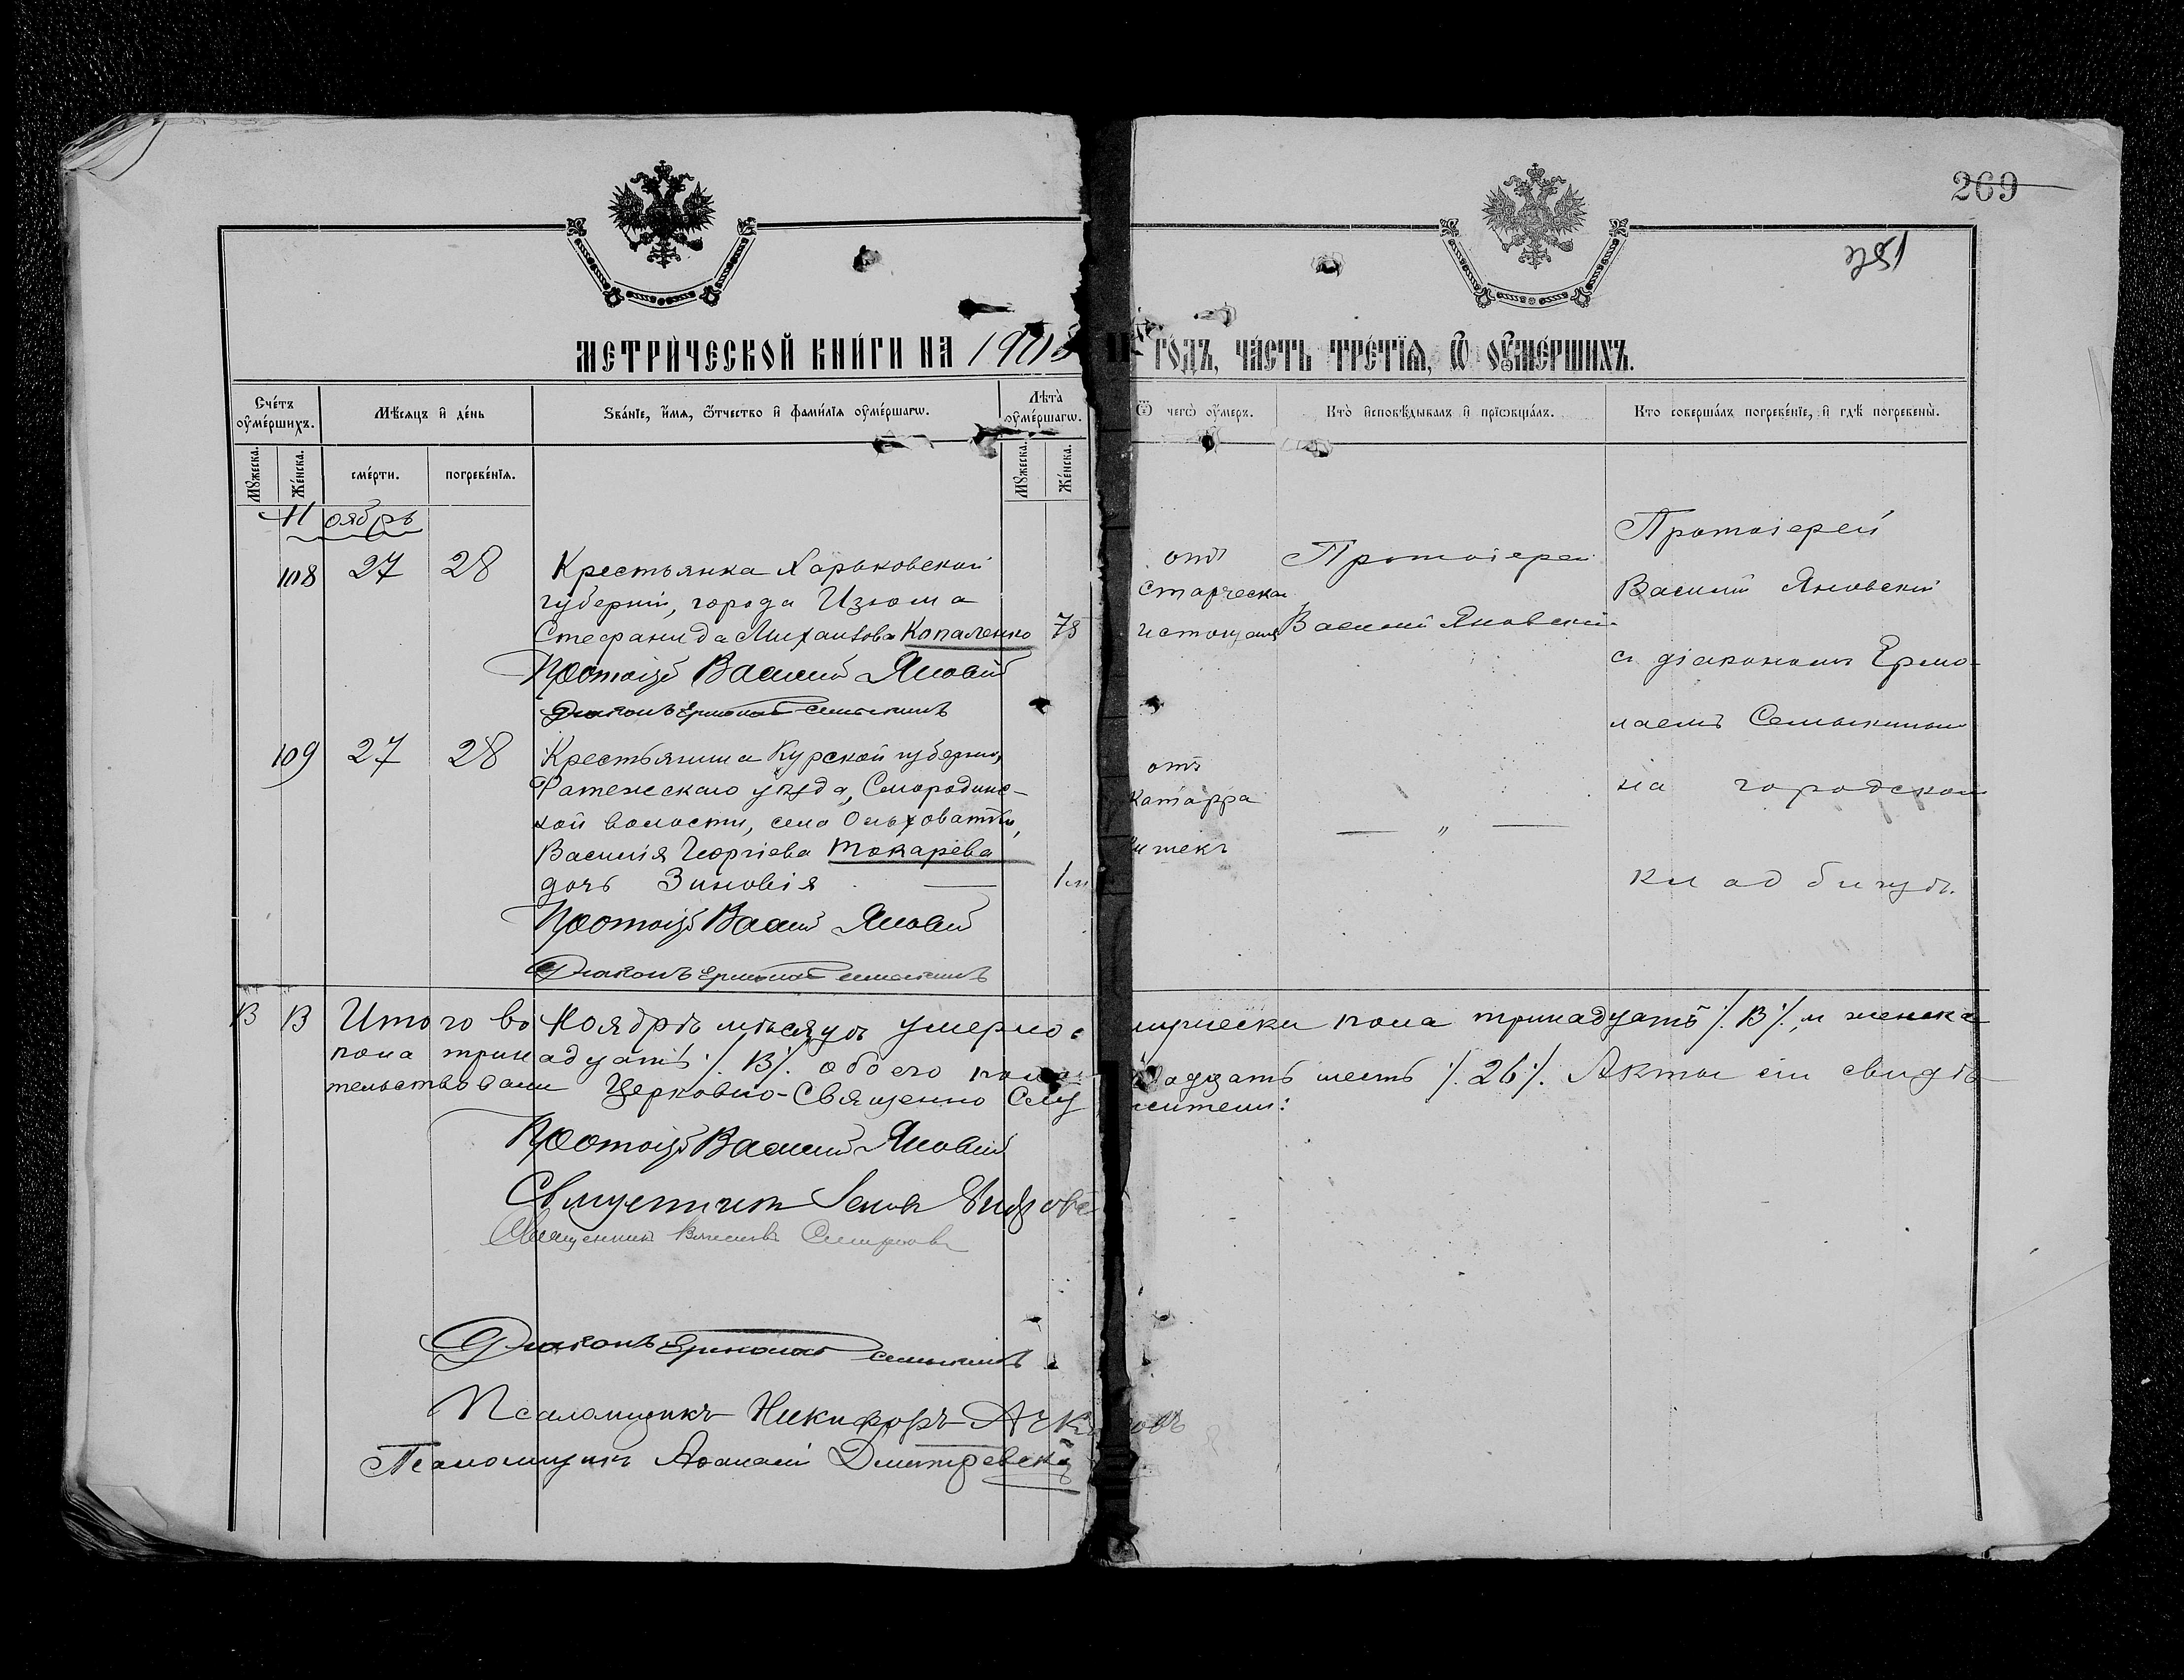 269
МЕТРИЧЕСКОЙ КНИГИ НА
ГОДЪ, ЧАСТЬ ТРЕТІЯ, Ѿ ОУМЕРШИХЪ.
Счетъ оумершихъ.
Мѣсяцъ и день
Званіе, имя, ѿчество и фамилія оумершагѡ.
Лѣта оумершагѡ.
Ѿ чегѡ оумеръ.
Кто исповѣдывалъ и пріѡбщалъ.
Кто совершалъ погребеніе, и гдѣ погребены.
Мужеска.
Женска.
смерти.
погребенія.
Мужеска.
Женска.
Ноябрь
108 27 28
Крестьянка Харьковской
губерніи, города Изюма
Стефанида Михаилова Копаленко
78
Протоіер Василій Яновскій
Діаконъ Ермолай Семыкинъ
отъ
старческа
истощенія
Протоіерей
Василій Яновскій
Протоіерей
Василій Яновскій
съ діакономъ Ермо-
лаемъ Семыкинымъ
на городском
кладбищѣ.
109 27 28
Крестьянина Курской губерніи,
Фатежскаго уѣзда, Смородинс-
кой волости, села Ольховатки,
Василія Георгіева Токарева
дочь Зиновія
1 м
Протоіер Василій Яновскій
Діаконъ Ермолай Семыкинъ
отъ
катарра
кишекъ
— „ —
13 13 Итого въ Ноябрѣ мѣсяцѣ умерло мужеска пола тринадцать ./. 13 ./., и женска
пола тринадцать ./. 13 ./. обоего пола двадцать шесть ./. 26 ./. Акты сіи свидѣ-
тельствовали Церковно-Священно Служители:
Протоіер Василій Яновскій
Священникъ
Священникъ Смирновъ
Діаконъ Ермолай Семыкинъ
Псаломщикъ Никифоръ
Псаломщикъ Аѳанасій Дмитревскій